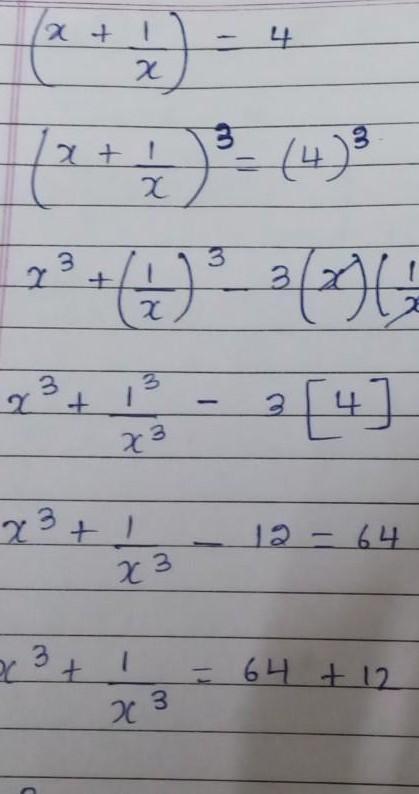 (x + 1/x) = 4
(x + 1/x)³ = (4)³
x³ + (1/x)³ - 3(x)(1/x
x³ + 1³/x³ - 3[4]
x³ + 1/x³ - 12 = 64
x³ + 1/x³ = 64 + 12